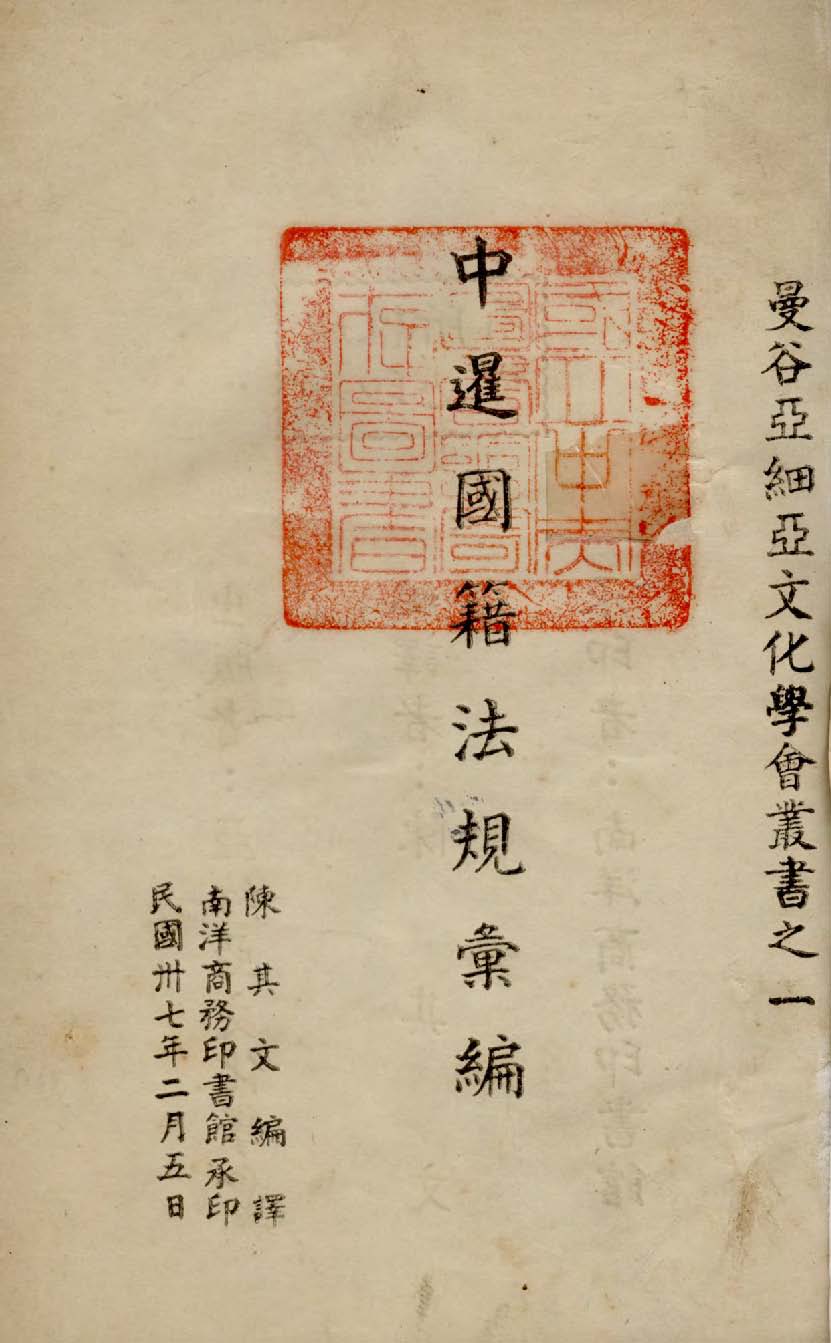 曼谷亞細亞文化學會叢書之一
中暹國籍法規彙編
陳其文編譯
南洋商務印書館承印
民國卅七年二月五日